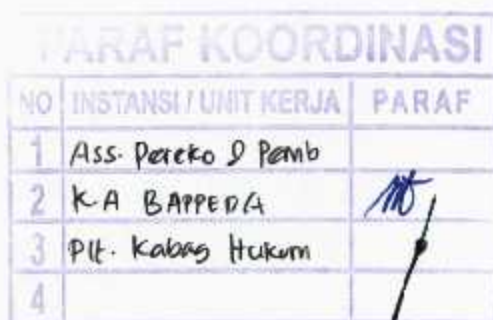 PARAF KOORDINASI
NO INSTANSI / UNIT KERJA PARAF
1 Ass. Pereko & Pemb
2 K.A BAPPEDA
3 Plt. Kabag Hukum
4